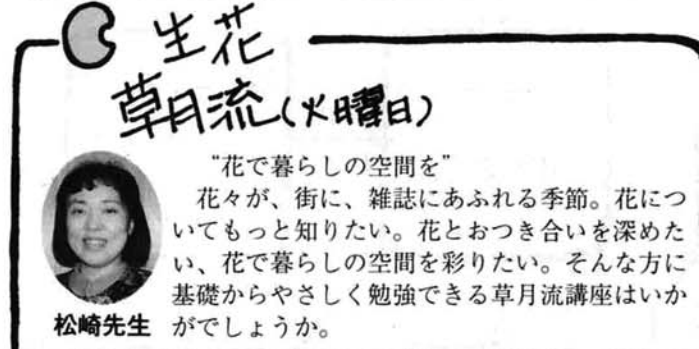 生花
草月流(火曜日)
"花で暮らしの空間を"
花々が、街に、雑誌にあふれる季節。花につ
いてもっと知りたい。花とおつき合いを深めた
い、花で暮らしの空間を彩りたい。そんな方に
基礎からやさしく勉強できる草月流講座はいか
がでしょうか。
松崎先生